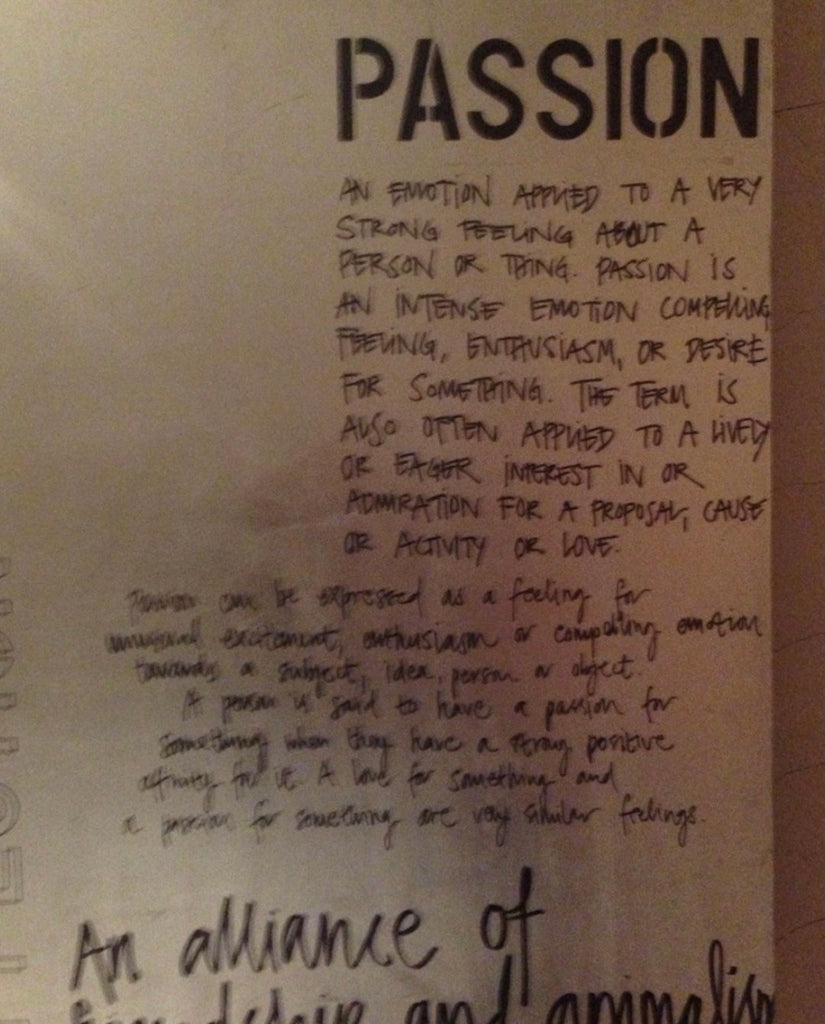 PASSION
AN EMOTION APPLIED TO A VERY
STRONG FEELING ABOUT A
PERSON OR THING. PASSION IS
AN INTENSE EMOTION COMPELLING
FEELING, ENTHUSIASM, OR DESIRE
FOR SOMETHING. THE TERM IS
ALSO OFTEN APPLIED TO A LIVELY
OR EAGER INTEREST IN OR
ADMIRATION FOR A PROPOSAL, CAUSE
OR ACTIVITY OR LOVE.
Passion can be expressed as a feeling for
unusual excitement, enthusiasm or compelling emotion
towards a subject, idea, person or object.
A person is said to have a passion for
something when they have a strong positive
affinity for it. A love for something and
a passion for something are very similar feelings.
An alliance of
and